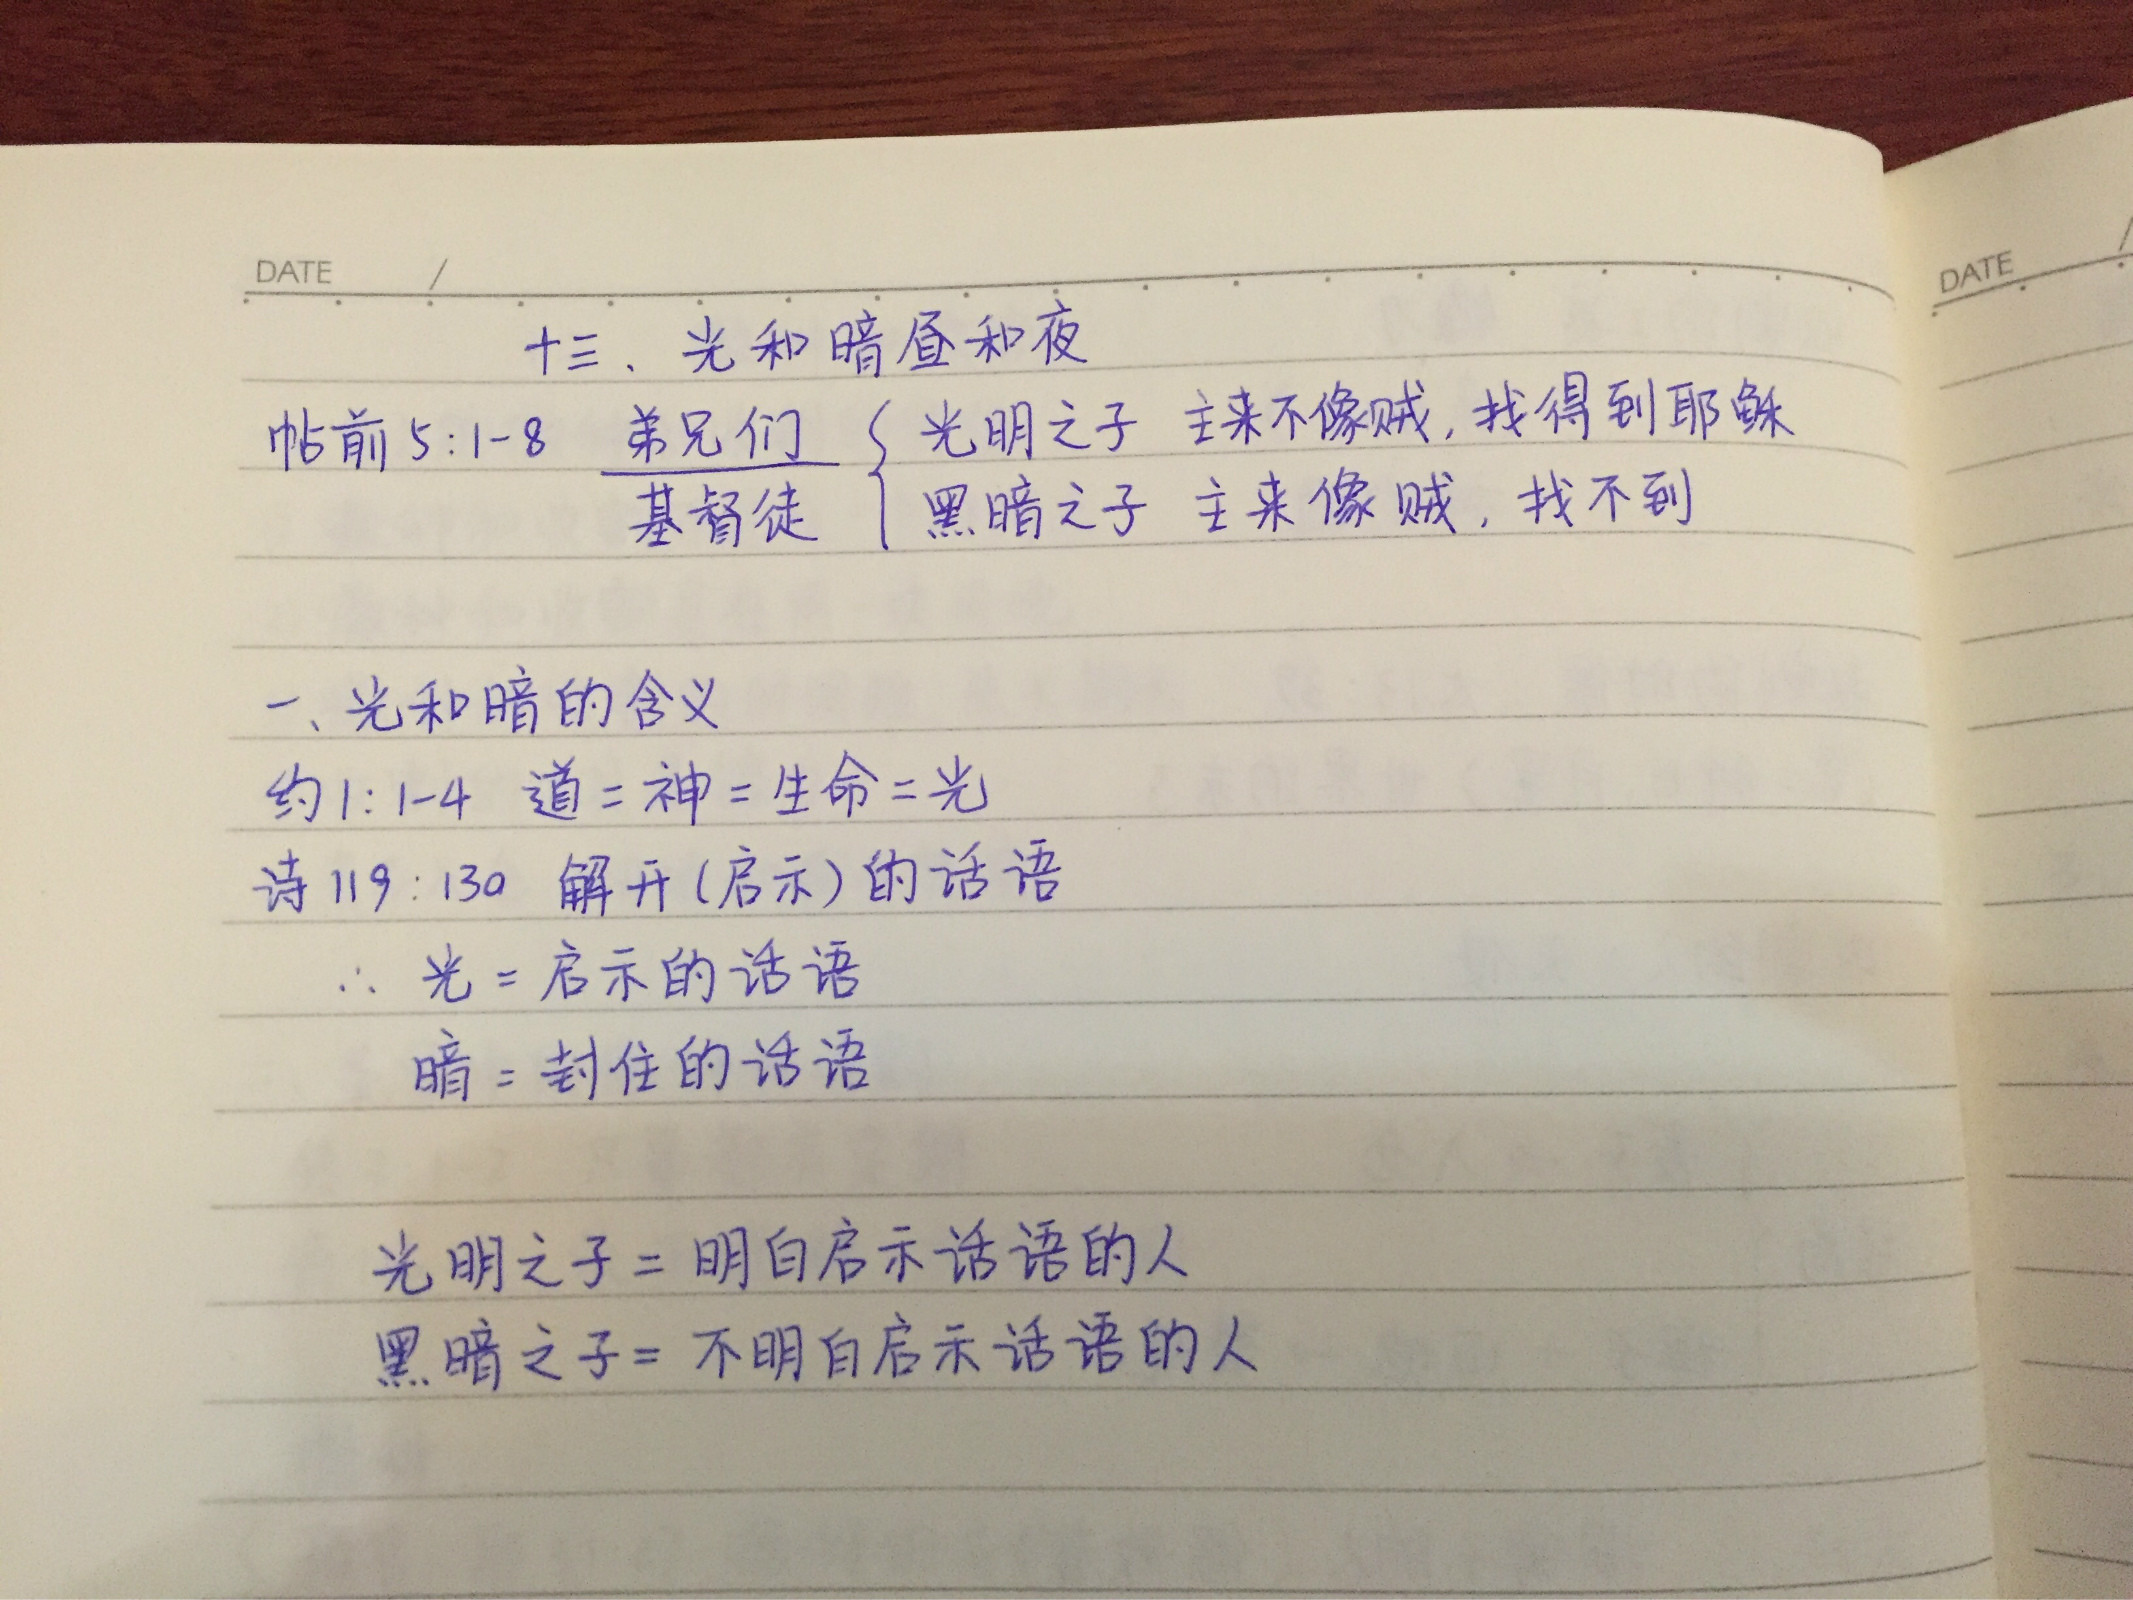 DATE /
DATE /
十三、光和暗昼和夜
帖前5:1-8 弟兄们 { 光明之子 主来不像贼,找得到耶稣
基督徒 黑暗之子 主来像贼,找不到
一、光和暗的含义
约1:1-4 道=神=生命=光
诗119:130 解开(启示)的话语
∴ 光=启示的话语
暗=封住的话语
光明之子=明白启示话语的人
黑暗之子=不明白启示话语的人